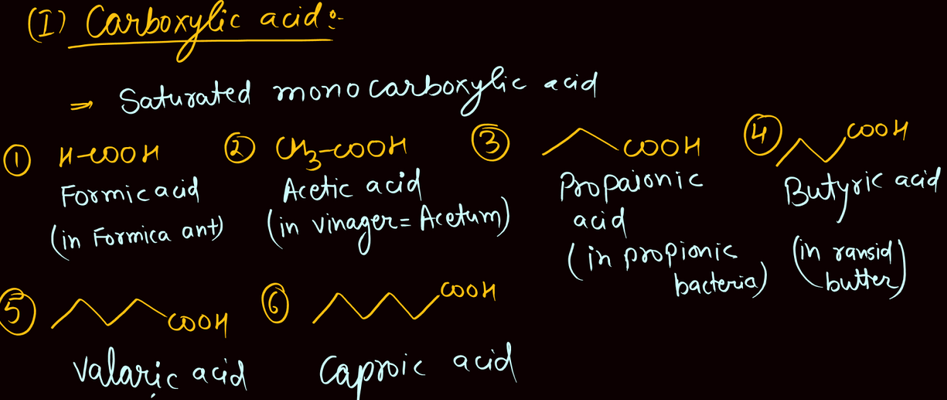 (I) Carboxylic acid :-
⇒ Saturated monocarboxylic acid
① H-COOH
Formic acid
(in Formica ant)
② CH3-COOH
Acetic acid
(in vinager = Acetum)
③ COOH
Propaionic
acid
(in propionic
bacteria)
④ COOH
Butyric acid
(in ransid
butter)
⑤ COOH
Valaric acid
⑥ COOH
Caproic acid